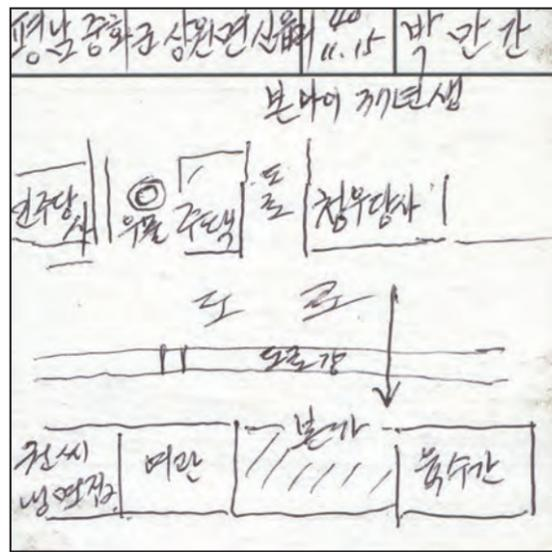 평남 중화군 상원면 신읍리 40 11.15 박만간
본 나이 37년생
민주당사 우물 주택 도로 청우당사
도로
도로강
본가
권씨 냉면집 여관 육수간